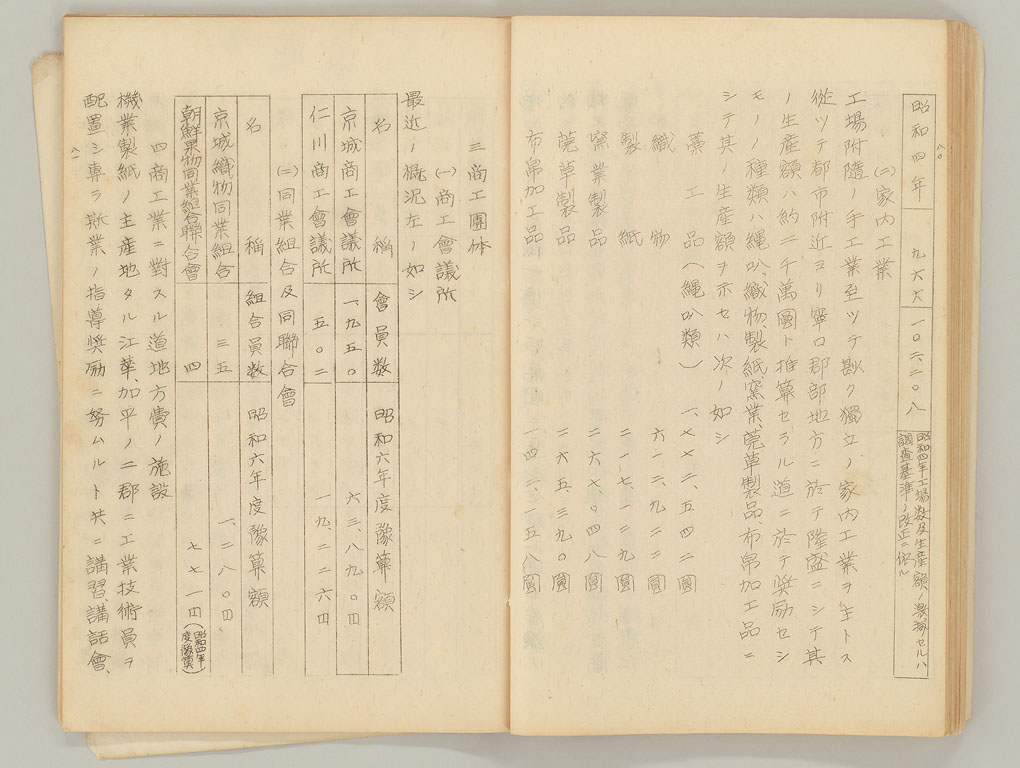 八〇
昭和四年 九六六 一〇二六二〇八 昭和四年工場数及生産額ノ激減セルハ
調査基準ノ改正ニ依ル
(二)家内工業
工場附隨ノ手工業至ツテ尠ク獨立ノ家内工業ヲ主トス
從ツテ都市附近ヨリ寧ロ郡部地方ニ於テ隆盛ニシテ其
ノ生産額ハ約二千萬圓ト推算セラル道ニ於テ奬励セシ
モノノ種類ハ縄叺、織物、製紙、窯業、莞草製品、布帛加工品ニ
シテ其ノ生産額ヲ示セハ次ノ如シ
藁工品(縄叺類) 一、七七二、五四二圓
織物 六一二、九二二圓
製紙 二一七、一二九圓
窯業製品 二六七、〇四八圓
莞草製品 二六五、三九〇圓
布帛加工品 一四二、一五八圓
三商工團体
(一)商工會議所
最近ノ概況左ノ如シ
名稱 會員数 昭和六年度豫算額
京城商工會議所 一、九五〇 六三、八九〇四
仁川商工會議所 五〇二 一九、二二六四
(二)同業組合及同聯合會
名稱 組合員数 昭和六年度豫算額
京城織物同業組合 三五 一、二八〇四
朝鮮果物同業組合聯合會 四 七七一四(昭和四年
度豫算)
四商工業ニ對スル道地方費ノ施設
機業製紙ノ主産地タル江華、加平ノ二郡ニ工業技術員ヲ
配置シ專ラ斯業ノ指導奬励ニ努ムルト共ニ講習、講話會、
八一